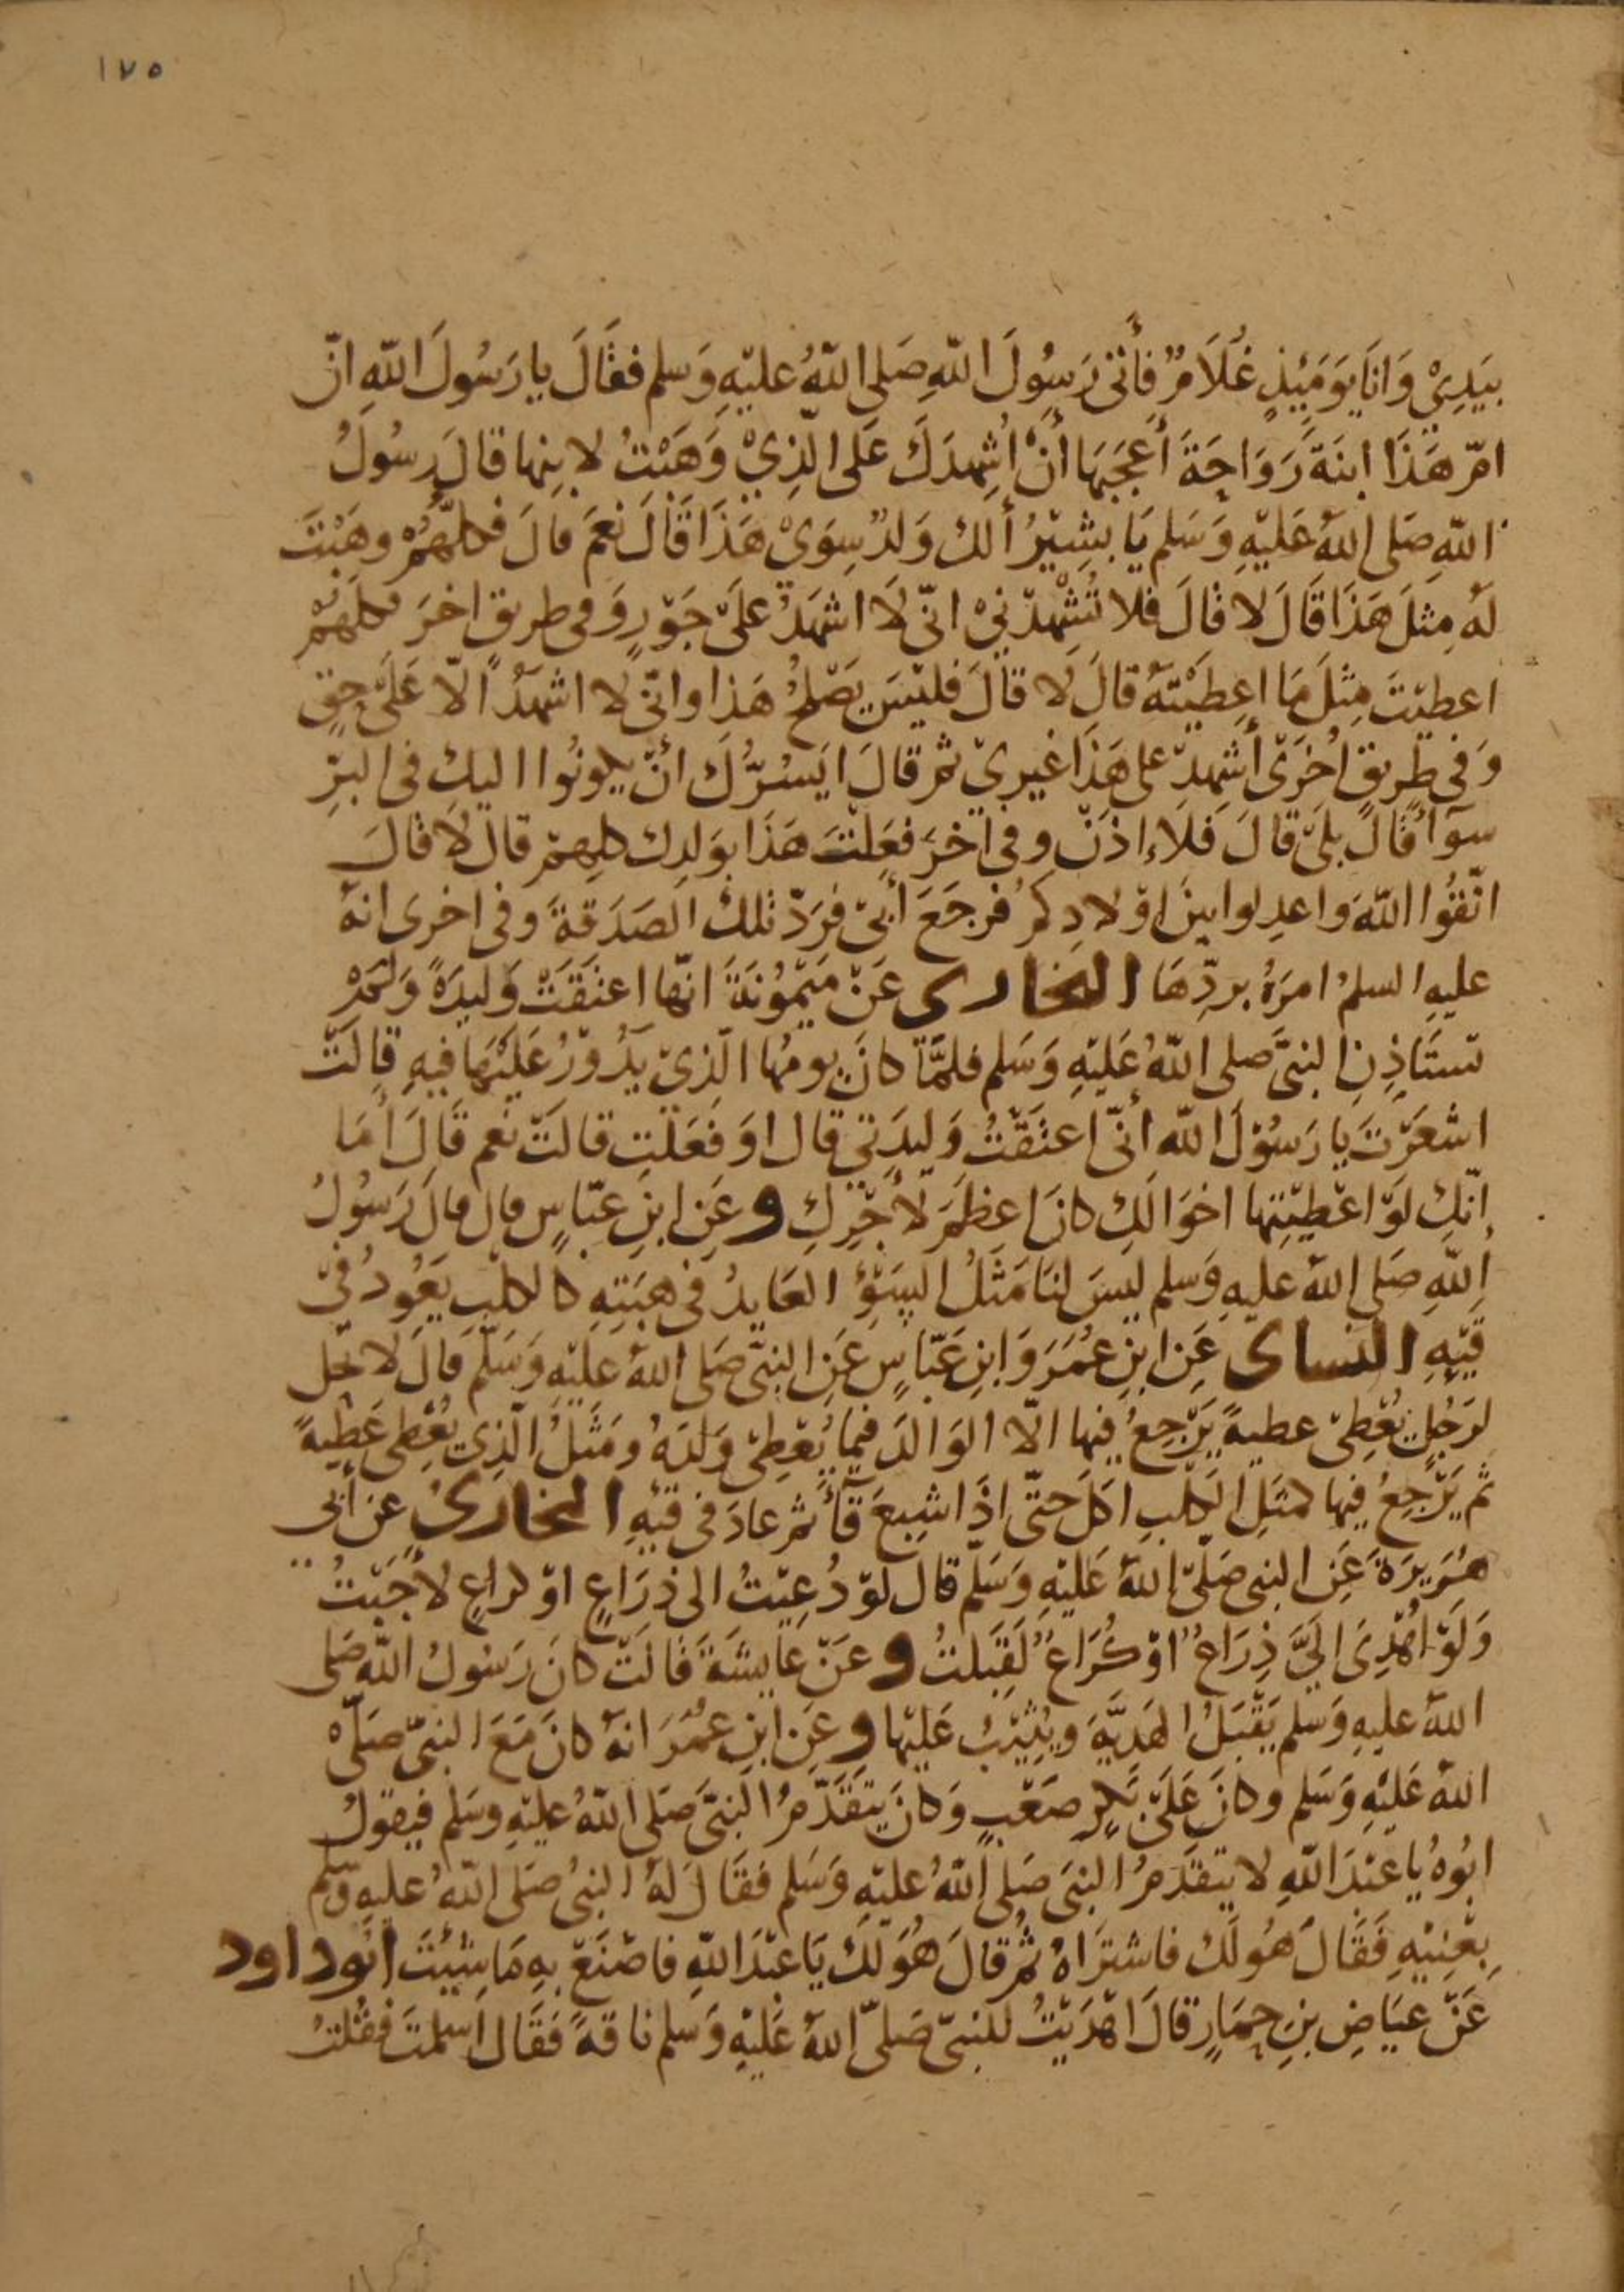 ١٧٥
بِيَدِيْ وَانَا يَوَمَيِٕذٍ غُلَامٌ فأَتىٰ رَسُولَ اللّٰهِ صَلى اللّٰهُ عليْهِ وَسلم فقَالَ يا رَسُولَ اللّٰهِ انّ
امّ هَذَا ابنَةَ رَوَاحَةَ أَعجَبَهَا أَنْ أُشهِدَكَ عَلى الّذِيْ وَهَبْتُ لابنِها قالَ رسُولُ
اللّٰهِ صَلى اللّٰهُ عَليْهِ وَسَلم يَا بشِيْرُ أَلكَ وَلدٌ سِوَىْ هَذَا قَالَ نَعَمْ قالَ فكلّهُمْ وهَبْتَ
لَهُ مِثلَ هَذَا قَالَ لا قَالَ فلا تُشْهِدْنيْ انّى لَا اشهَدُ علَىْ جَوْرٍ وَفى طريقٍ اخرَ فكلّهُمْ
اعطيْتَ مِثلَ مَا اعطَيْتَهُ قالَ لا قالَ فليْسَ يَصْلحُ هَذا وانّى لا اشهَدُ الّا عَلىْ حقٍ
وَفى طريقٍ اُخرَى أَشهِدْ على هَذَا غيرِيْ ثمّ قالَ ايَسُرُّكَ انْ يكونُوا اليكَ فى البِرِّ
سوآءً قالَ بلىْ قالَ فَلَا اِذَنْ وفى اخرَ فعَلْتَ هَذَا بوَلدِكَ كلهِمْ قالَ لَا قالَ
اتّقُوا اللّٰهَ واعدِلوا بينَ اوْلادِكمُ فرجَعَ أَبىْ فرَدّ تلكَ الصَدَقَةَ وفى اخرى انهُ
عليهِ السلمُ امرَهُ بردِّهَا البخارى عَنْ مَيْمُوْنَةَ انّها اعتقَتْ وَليدَةً وَلمْ
تستَاذِنِ النبىَّ صلى اللّٰهُ عَليْهِ وَسَلم فلمَّا كانَ يومُها الّذِيْ يَدُوْرُ عَليْهَا فيهِ قالَتْ
اشعَرْتَ يا رَسُوْلَ اللّٰه أَنّى اعتقْتُ وَليدَتى قال اوَفعَلْتِ قالتْ نعم قَالَ أَمَا
إنّكِ لوْ اعْطيْتِها اخوَالكِ كانَ اعظَمَ لأَجْرِكِ وعَنِ ابنِ عبّاسٍ قالَ قالَ رَسُولُ
اللّٰهِ صَلى اللّٰهُ عليهِ وَسلم ليسَ لنَا مَثَلُ السَوْءِ العَايدُ فى هبَتِهِ كالكلبِ يَعُودُ فىْ
قَيْئِهِ النساى عَنِ ابنِ عُمَرَ وَابنِ عَبّاسٍ عَنِ النبىّ صَلى اللّٰهُ عَليْهِ وَسَلّمَ قَالَ لا تحل
لرَجُلٍ يُعْطِىْ عطيةً يَرْجِعُ فيها الّا الوَالدَ فيمَا يُعْطِىْ وَلدَهُ ومَثَلُ الّذِى يُعْطى عَطِيةً
ثم يَرْجِعُ فيها كمثلِ الكلبِ اكَلَ حَتّى اذَا شبعَ قآءَ ثم عادَ فى قَيْئِهِ البخارىُ عن أبى
هُرَيْرَةَ عَنِ النبى صَلّىْ اللّٰهُ عَليْهِ وَسَلّم قال لوْ دُعِيْتُ الى ذِرَاعٍ اوْ كراعٍ لأَجَبْتُ
وَلَوْ اُهْدِىَ الىَّ ذِرَاعٌ اوْ كُرَاعٌ لَقَبَلتُ وعَنْ عَايشَةَ قالَتْ كانَ رَسُولُ اللّٰهِ صَلى
اللّٰهُ عليهِ وَسَلم يَقْبَلُ الهَديَّةَ ويُثِيْبُ عَليْها وعَنِ ابنِ عُمَرَ انهُ كانَ مَعَ النبىّ صَلّى
اللّٰهُ عَليْهِ وَسَلم وكانَ عَلَىْ بَكرٍ صَعْبٍ وَكانَ يَتقَدَّمُ النبىَّ صَلى اللّٰهُ عليْهِ وسَلم فيقولُ
ابُوهُ يا عَبْدَ اللّٰهِ لا يتقَدّمُ النبىَ صَلى اللّٰهُ عليْهِ وَسَلم فقَالَ لهُ النبىُ صَلى اللّٰهُ عليهِ وسلم
بِعْنِيْهِ فَقَالَ هُولَكَ فاشترَاهُ ثمُ قالَ هُوَلَكَ يَا عَبْدَ اللّٰهِ فاصْنَعْ بهِ مَا شِيْتَ ابُو داود
عَنْ عيَاضِ بنِ حِمَارٍ قالَ اهْدَيْتُ للنبىّ صَلىّ اللّٰهُ عَليْهِ وَسَلم ناقةً فَقَالَ اسلمتَ فقُلتُ